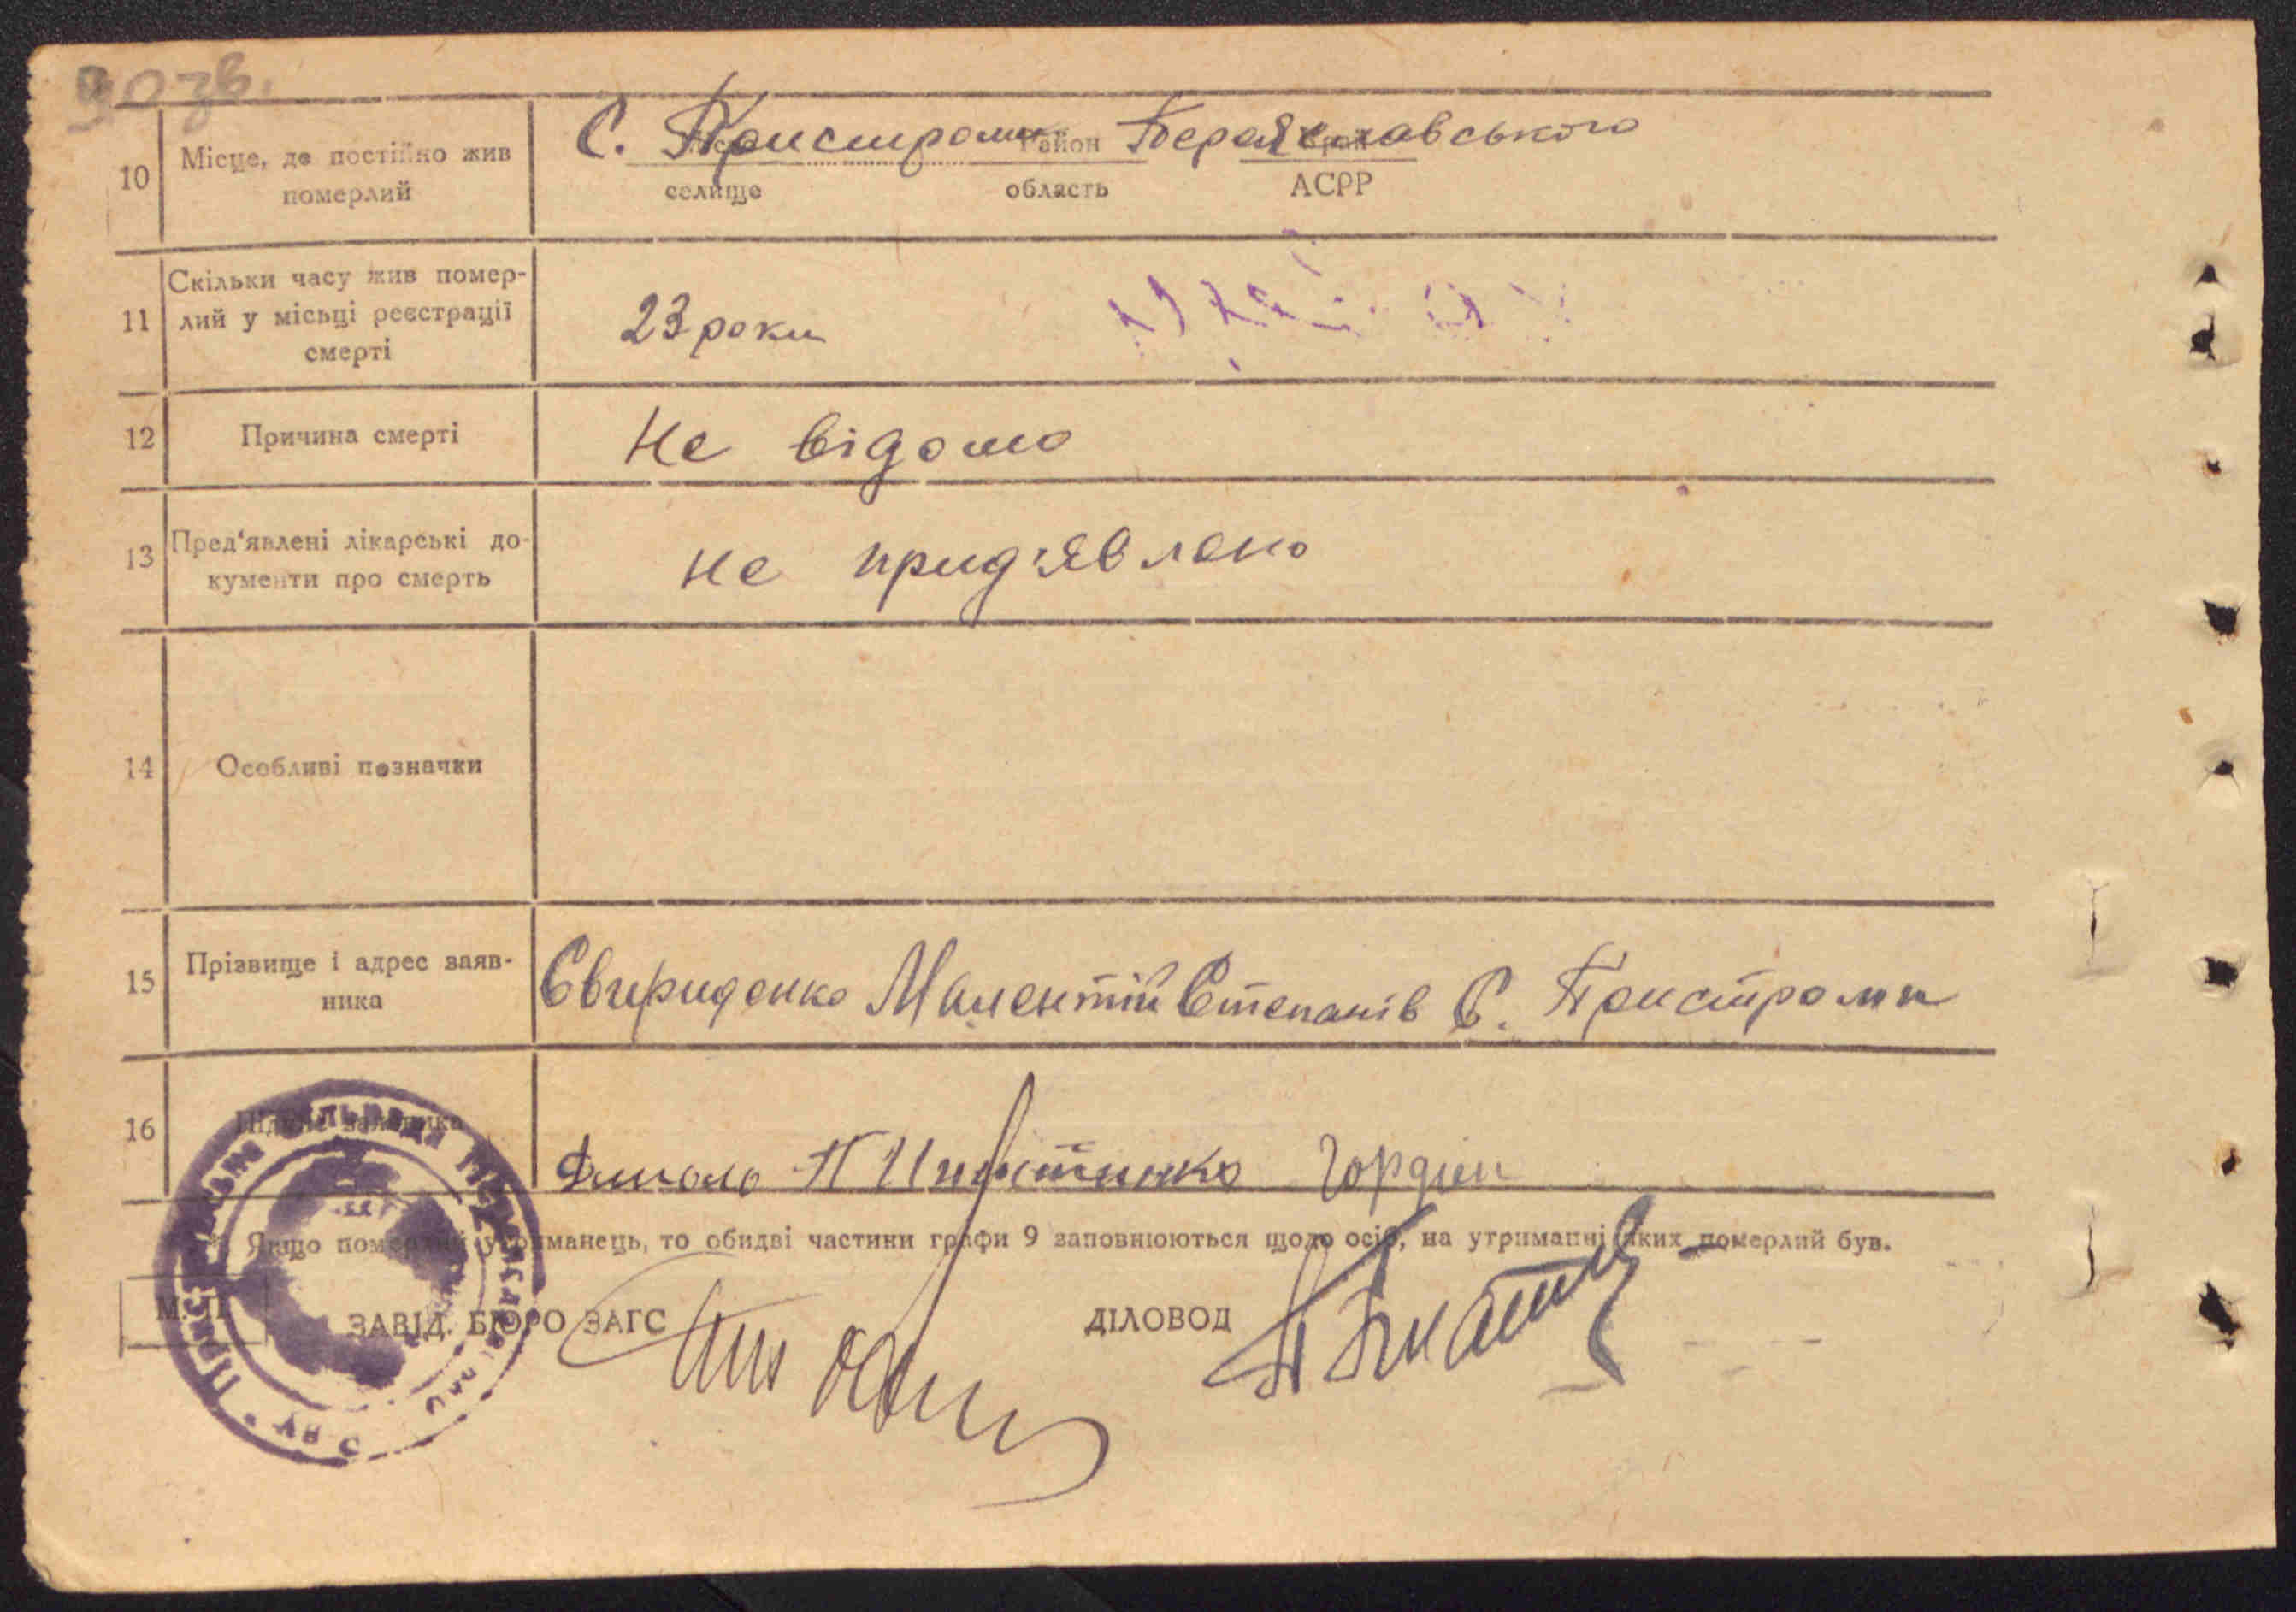 90 зв.
С. Пристроми район Переяславського
селище область АСРР
10 Місце, де постійно жив
померлий
11 Скільки часу жив помер-
лий у місьці реєстрації
смерті
23 роки
12 Причина смерті
Не відомо
13 Пред'явлені лікарські до-
кументи про смерть
не пред'явлено
14 Особливі позначки
15 Прізвище і адрес заяв-
ника
Свириденко Мелентій Степанів С. Пристроми
16 Підпис заявника
Якщо померлий утриманець, то обидві частини графи 9 заповнюються щодо осіб, на утриманні яких померлий був.
М. П.
ЗАВІД. БЮРО ЗАГС
ДІЛОВОД